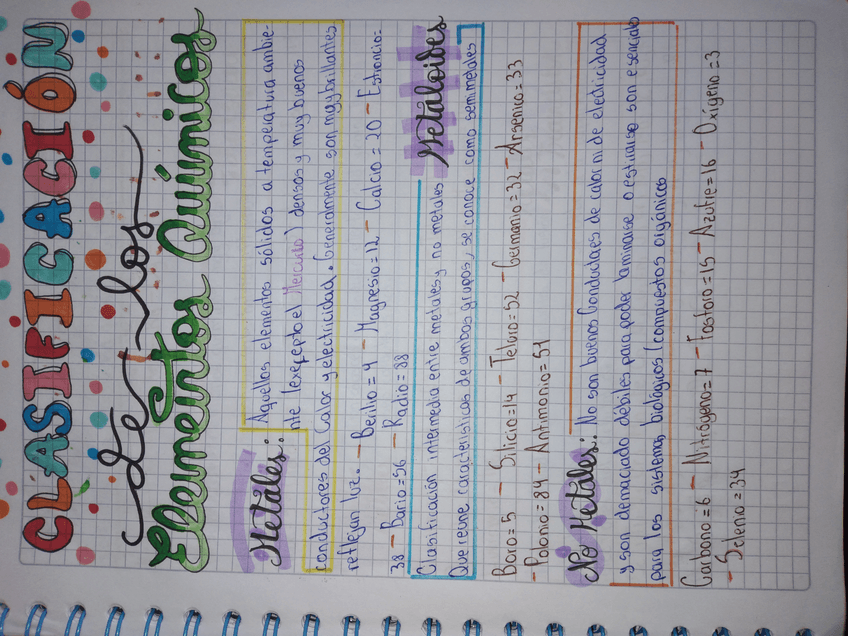 CLASIFICACIÓN
de los
Elementos Químicos
Metáles: Aquellos elementos sólidos a temperatura ambie-
nte (exepcepto el Mercurio) densos y muy buenos
conductores del Calor y electricidad. Generalmente son muy brillantes
reflejan luz. - Berilio = 4 - Magnesio = 12 - Calcio = 20 - Estroncio =
38 - Bario = 56 - Radio = 88
Metáloides
Clasificación intermedia entre metales y no metales
Que reune características de ambos grupos, se conoce como semimetales
Boro = 5 - Silicio = 14 - Teluro = 52 - Germanio = 32 - Arsenico = 33
- Polonio = 84 - Antimonio = 51
No Metáles: No son buenos Conductores de calor ni de eledricidad
y son demaciado débiles para poder laminarse o estirarse son esenciales
para los sistemas biológicos (compuestos orgánicos
Carbono = 6 - Nitrógeno = 7 - Fosforo = 15 - Azufre = 16 - Oxígeno = 3
- Selenio = 34